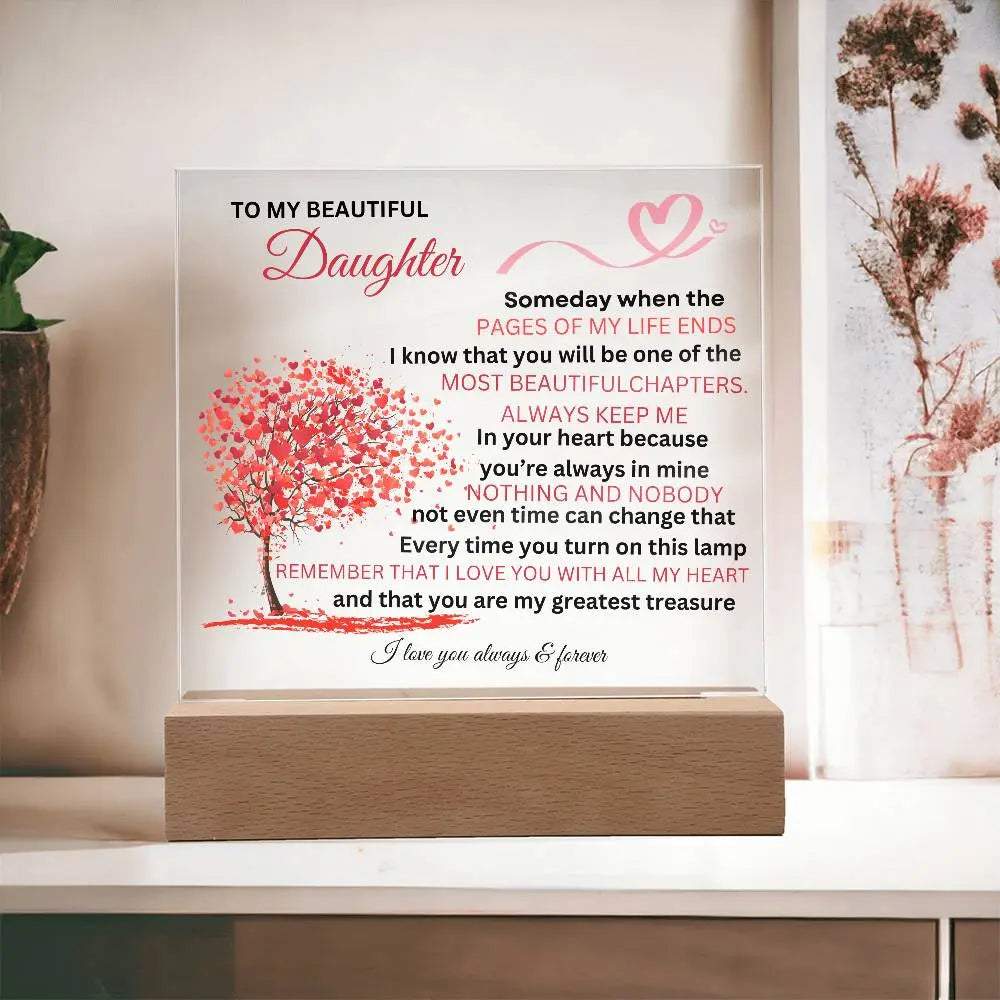 TO MY BEAUTIFUL
Daughter
Someday when the
PAGES OF MY LIFE ENDS
I know that you will be one of the
MOST BEAUTIFULCHAPTERS.
ALWAYS KEEP ME
In your heart because
you're always in mine
'NOTHING AND NOBODY
not even time can change that
Every time you turn on this lamp
REMEMBER THAT I LOVE YOU WITH ALL MY HEART
and that you are my greatest treasure
I love you always & forever